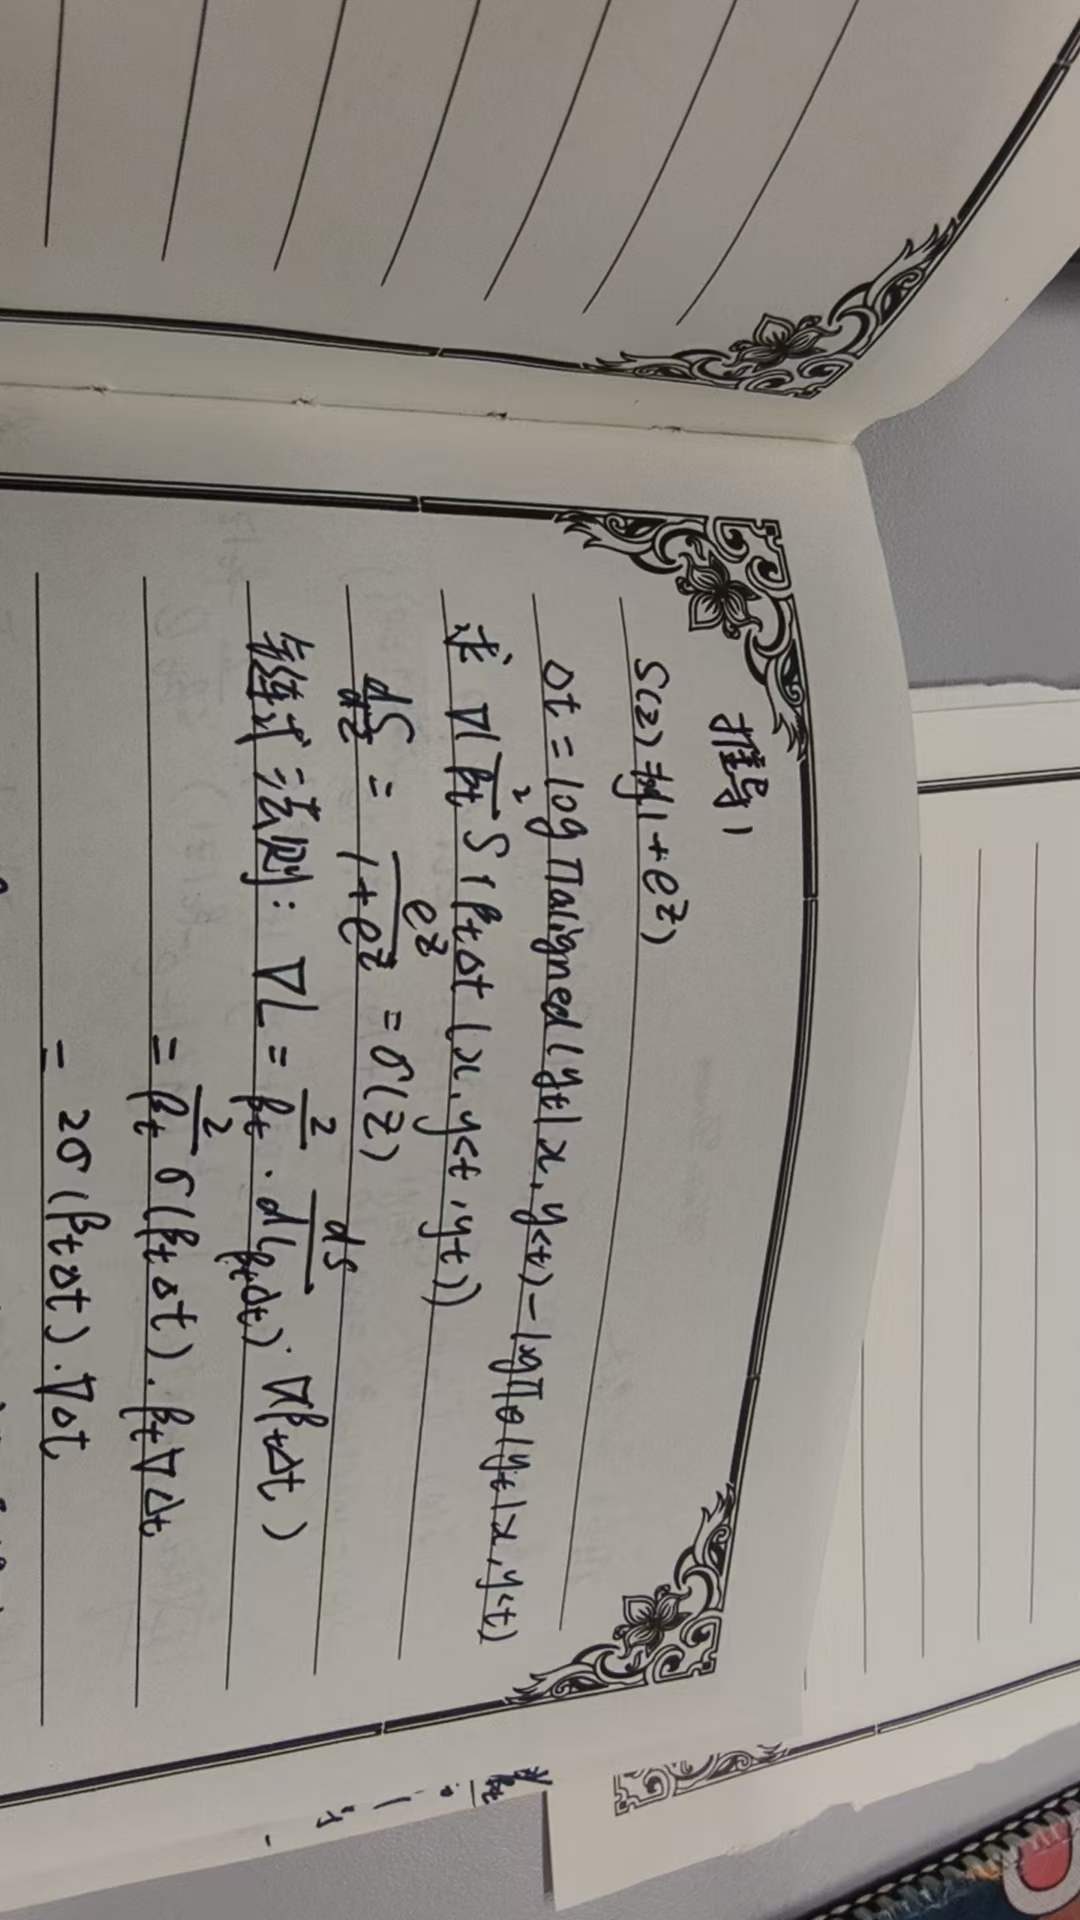 推导1
S(z)=log(1+e^z)
Δt = log πaligned(yt|x,y<t) - logπθ(yt|x,y<t)
求 ∇ 2/βt S(βtΔt(x,y<t,yt))
dS/dz = e^z/(1+e^z) = σ(z)
链式法则: ∇L = 2/βt · dS/d(βtΔt) · ∇(βtΔt)
= 2/βt σ(βtΔt) · βt∇Δt
= 2σ(βtΔt) · ∇Δt